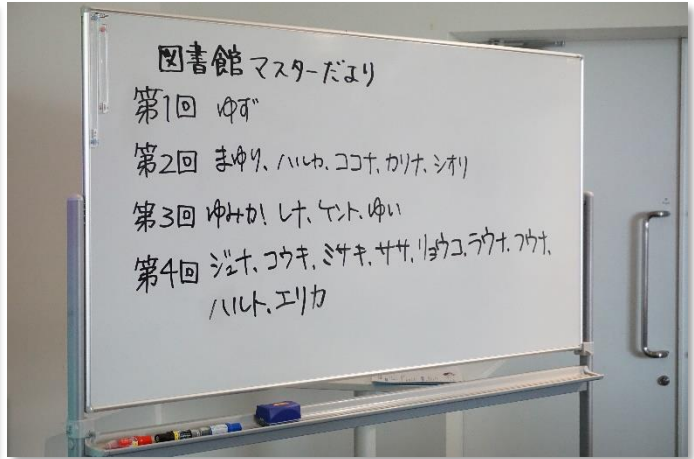 図書館マスターだより
第1回 ゆず
第2回 まゆり、ハルカ、ココナ、カリナ、シオリ
第3回 ゆみか! レナ、ケント、ゆい
第4回 ジュナ、コウキ、ミサキ、ササ、リョウコ、ラウナ、フウナ、
ハルト、エリカ